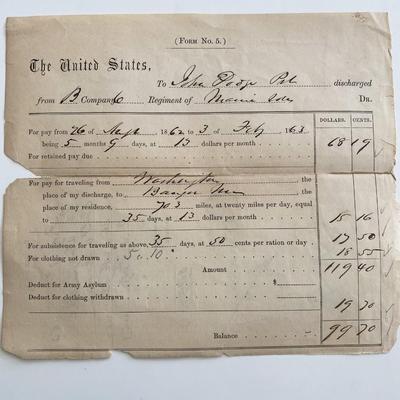 (FORM No. 5.)
The United States,
To John Dodge Pvt discharged
from B Company 6 Regiment of Maine Vols DR.
DOLLARS. CENTS.
For pay from 26 of Sept 1862 to 3 of Feby 1863
being 5 months 9 days, at 13 dollars per month 68 19
For retained pay due
For pay for traveling from Washington the
place of my discharge, to Bangor Me the
place of my residence, 703 miles, at twenty miles per day, equal
to 35 days, at 13 dollars per month 15 16
For subsistence for traveling as above, 35 days, at 50 cents per ration or day 17 50
For clothing not drawn 18 55
Amount 119 40
Deduct for Army Asylum $
Deduct for clothing withdrawn
19 70
Balance 99 70